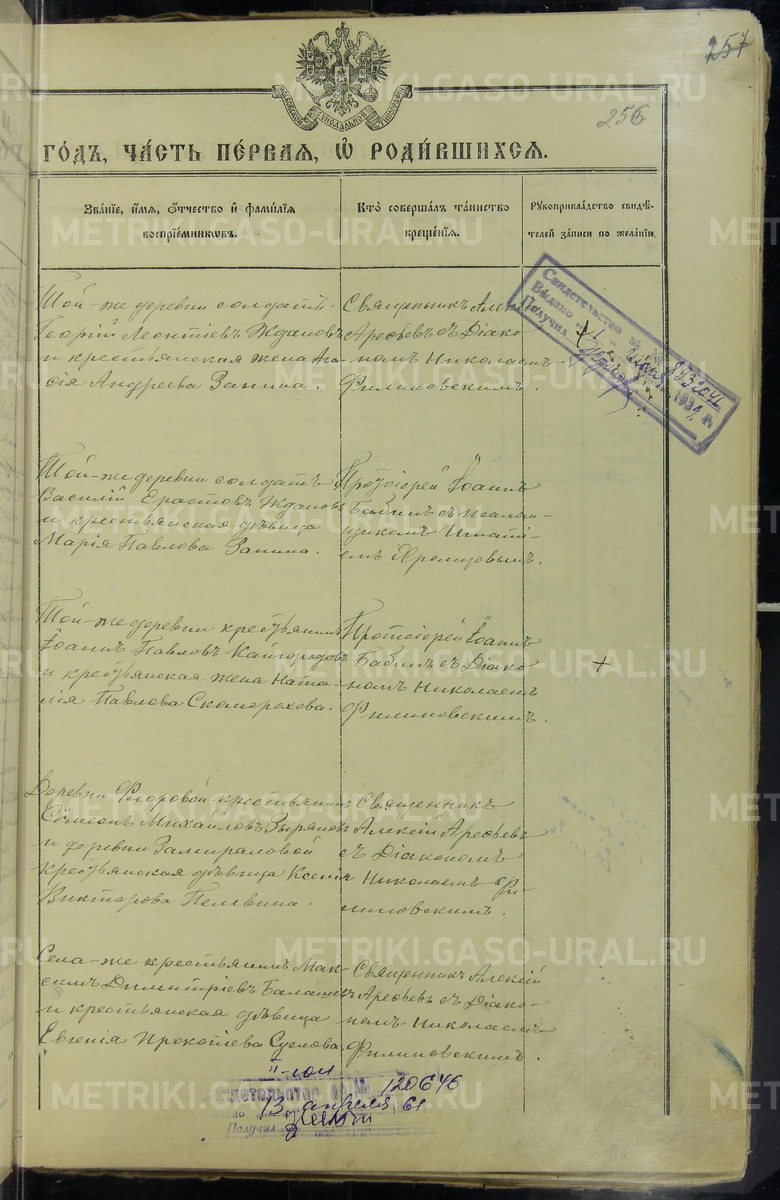 257
256
МОСКОВСКОЙ СѴНОДАЛЬНОЙ ТИПОГРАФІИ
ГО́ДЪ, ЧА́СТЬ ПЕ́РВАЯ, Ѽ РОДИ́ВШИХСЯ.
Зва́нїе, и́мя, ѻ҆́тчество и҆ фами́лїя
воспрїе́мникѡвъ.
Кто̀ соверша́лъ та́инство
креще́нїя.
Рꙋкоприкла́дство свидѣ́-
телей за́писи по жела́нїю.
Той-же деревни солдатъ
Георгій Леонтіевъ Ждановъ
и крестьянская жена Ана-
сія Андреева Занина.
Священникъ Алексій
Аресьевъ съ Діако-
номъ Николаемъ
Филиповскимъ.
Свидетельство за №
Выдано
Получил
Той-же деревни солдатъ
Василій Ерастовъ Ждановъ
и крестьянская дѣвица
Марія Павлова Занина.
Протоіерей Іоаннъ
Бабинъ съ Псалом-
щикомъ Игнаті-
емъ Хромцовымъ.
Той-же деревни крестьянинъ
Іоаннъ Павловъ Кайгородовъ
и крестьянская жена Ната-
лія Павлова Скоморохова.
Протоіерей Іоаннъ
Бабинъ съ Діако-
номъ Николаемъ
Филиповскимъ.
+
Деревни Ѳедоровой крестьянинъ
Сѷмеонъ Михайловъ Зырянов
и деревни Замираловой
крестьянская дѣвица Ксенія
Викторова Пелевина.
Священникъ
Алексій Аресьевъ
съ Діакономъ
Николаемъ Фи-
липовскимъ.
Села-же крестьянинъ Мак-
симъ Димитріевъ Балашев
и крестьянская дѣвица
Евгенія Прокопіева Суслова.
Священникъ Алексій
Аресьевъ съ Діако-
номъ Николаемъ
Филиповскимъ.
II-юл
120646
13 апреля 61
Получил
METRIKI.GASO-URAL.RU